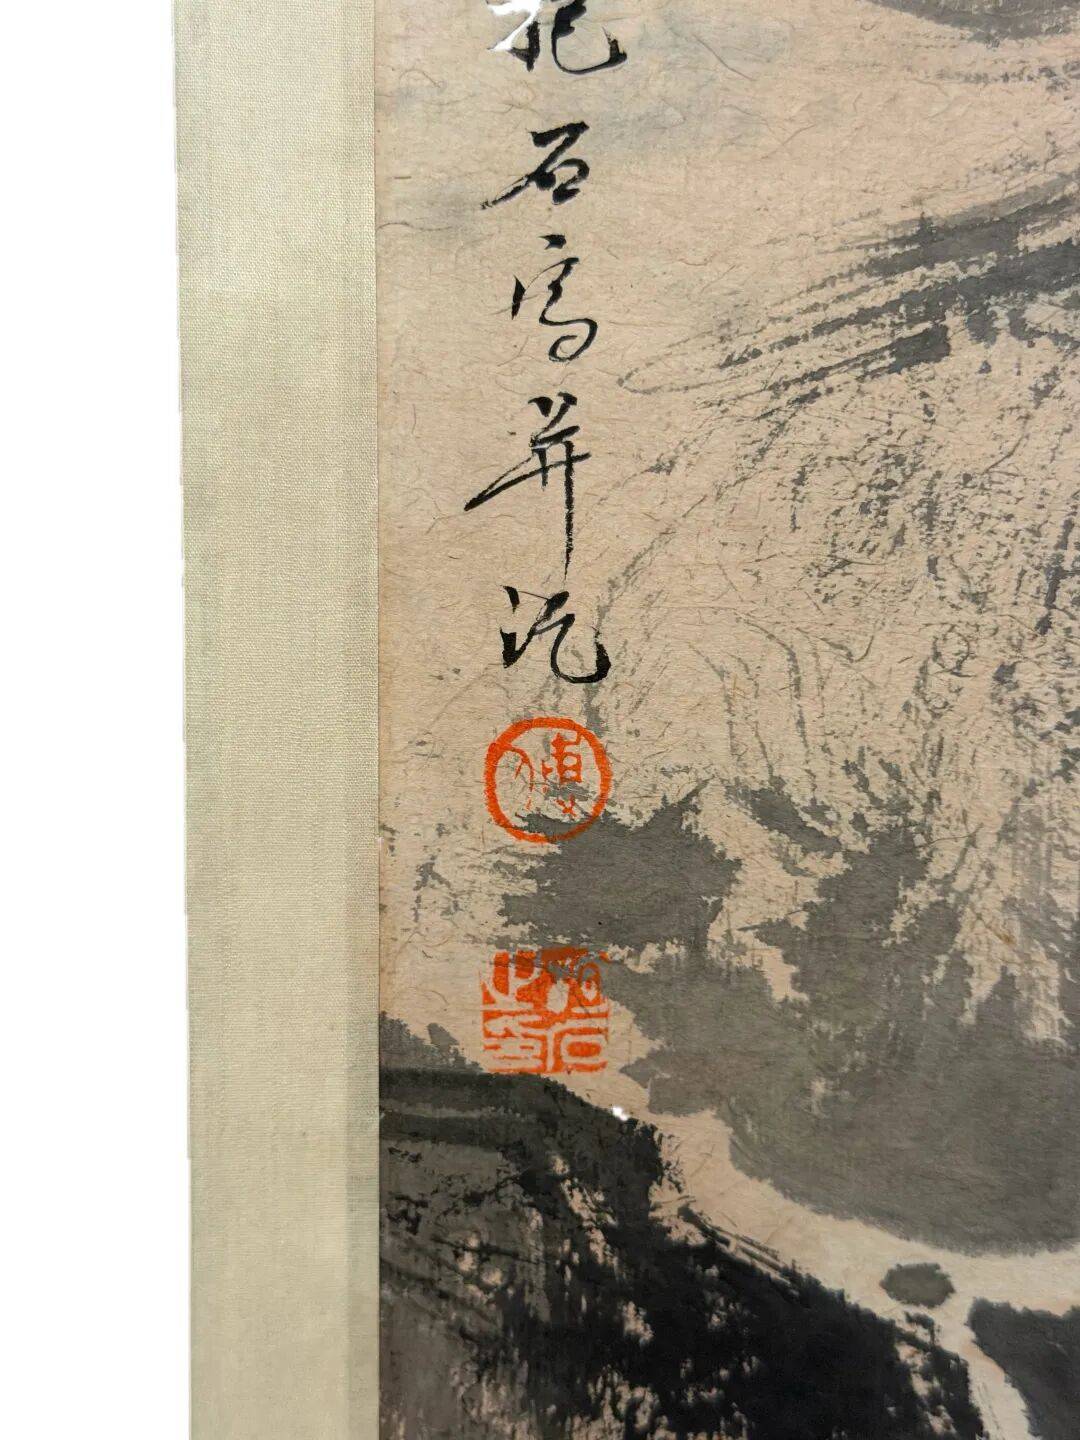 抱石寫并記
傅
抱石之印